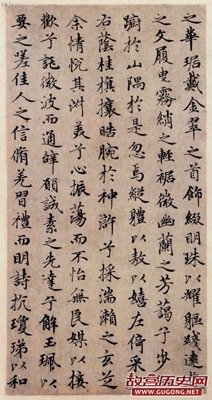 之華琚戴金翠之首飾綴明珠以耀軀踐遠
之文履曳霧綃之輕裾微幽蘭之芳藹兮步
躕於山隅於是忽焉縱體以敖以嬉左倚采
右蔭桂旗攘皓腕於神滸兮採湍瀨之玄芝
余情悅其淑美兮心振蕩而不怡無良媒以接
歡兮託微波而通辭願誠素之先達兮解玉珮以
要之嗟佳人之信脩羌習禮而明詩抗瓊珶以和
故宫历史网